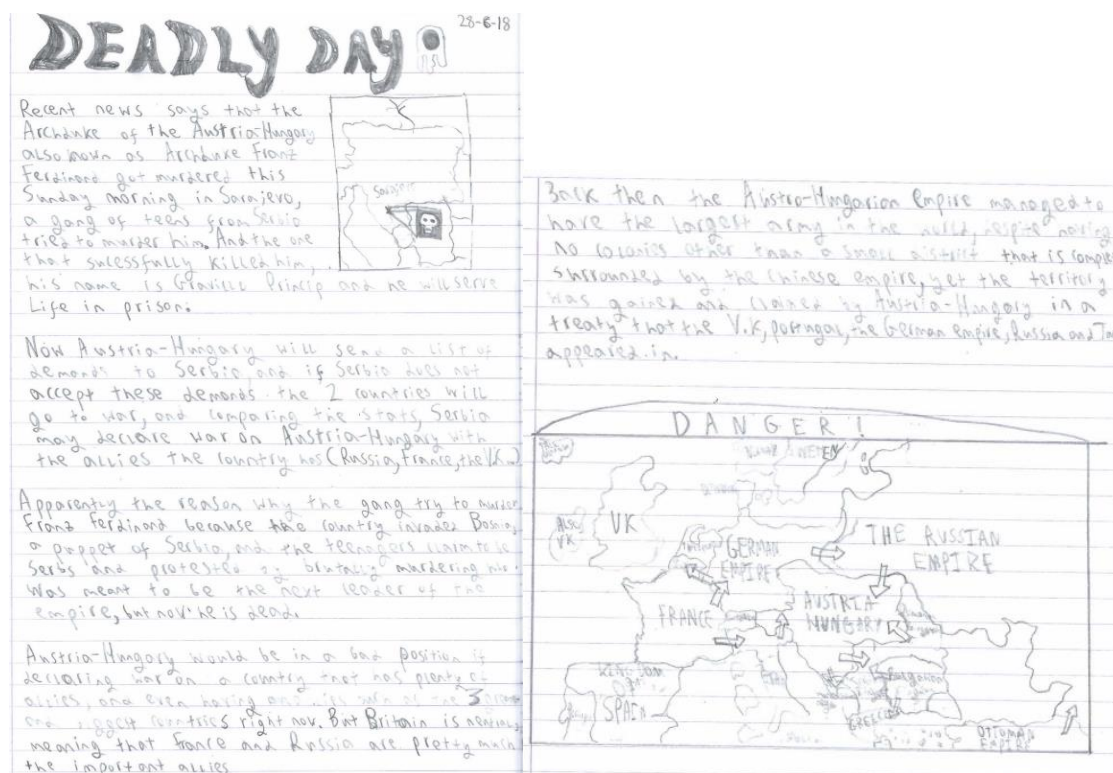 28-6-18
DEADLY DAY
Recent news says that the
Archduke of the Austria-Hungary
also known as Archduke Franz
Ferdinand got murdered this
Sunday morning in Sarajevo,
a gang of teens from Serbia
tried to murder him. And the one
that sucessfully killed him,
his name is Gravillo Princip and he will serve
Life in prison.
Sarajevo
Now Austria-Hungary will send a list of
demands to Serbia, and if Serbia does not
accept these demands the 2 countries will
go to war, and comparing the stats, Serbia
may declare war on Austria-Hungary with
the allies the country has (Russia, France, the UK
Apparently the reason why the gang try to murder
Franz Ferdinand because the country invaded Bosnia,
a puppet of Serbia, and the teenagers claim to be
Serbs and protested by brutally murdering
was meant to be the next leader of the
empire, but now he is dead.
Austria-Hungary would be in a bad position if
declaring war on a country that has plenty of
allies, and even having of the 3
biggest countries right now. But Britain is
meaning that France and Russia are pretty much
the important allies
Back then the Austro-Hungarian empire managed to
have the largest army in the world, despite having
no colonies other than a small district that is
surrounded by the Chinese empire, yet the territory
was gained and claimed by Austria-Hungary in a
treaty that the U.K, portugal, the German empire, Russia and
appeared in.
DANGER!
ALSO
UK
UK
GERMAN
EMPIRE
THE RUSSIAN
EMPIRE
FRANCE
AUSTRIA
HUNGARY
KINGDOM
SPAIN
OTTOMAN
EMPIRE